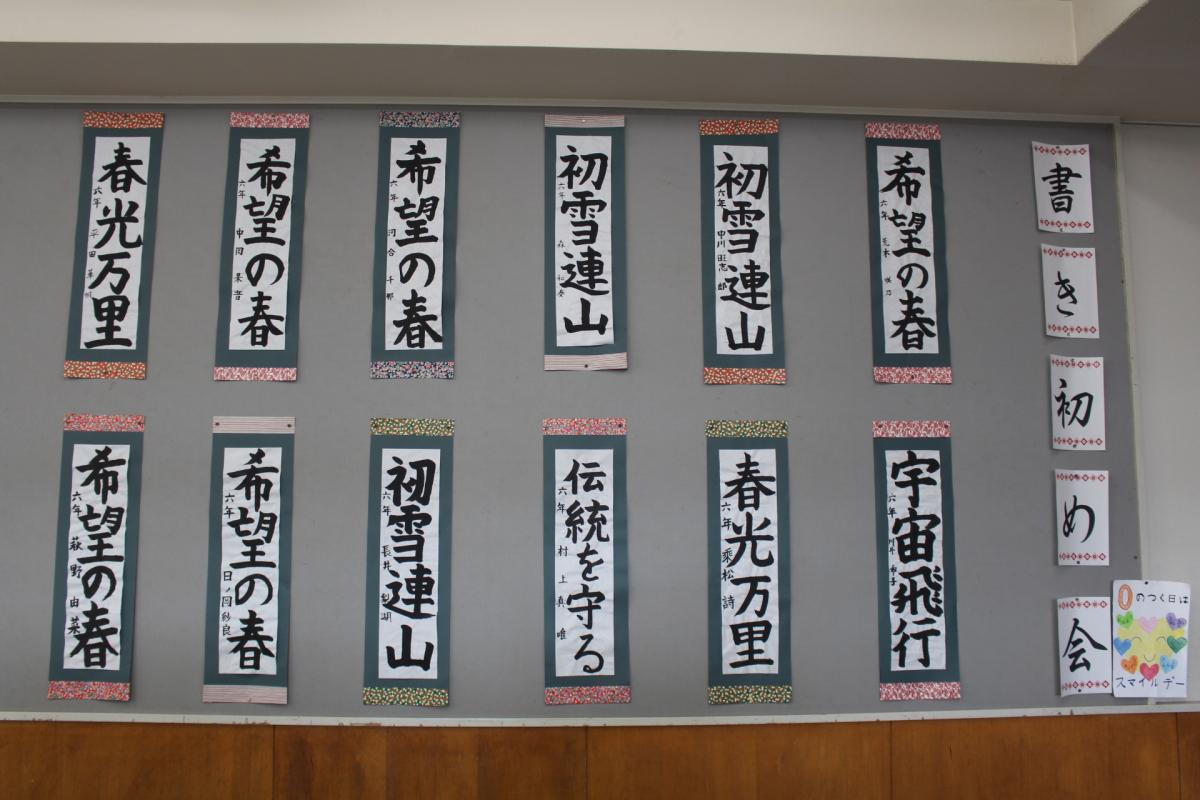 書き初め会
希望の春
六年 荒木 咲乃
初雪連山
六年 中川
初雪連山
六年 森
希望の春
六年 河合 千那
希望の春
六年 中岡
春光万里
六年 平田
宇宙飛行
六年
春光万里
六年 乘松 詩
伝統を守る
六年 村上 真唯
初雪連山
六年 長井
希望の春
六年 日ノ岡 紗良
希望の春
六年 萩野 由菜
0のつく日は
スマイルデー